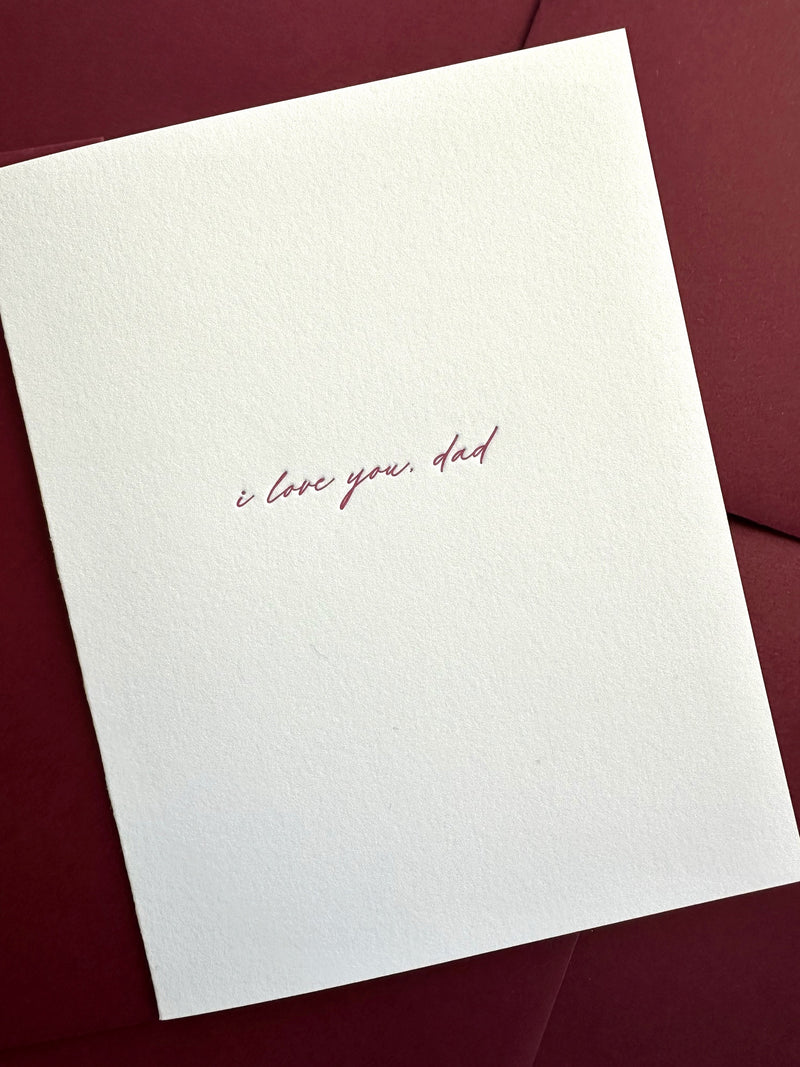 i love you, dad